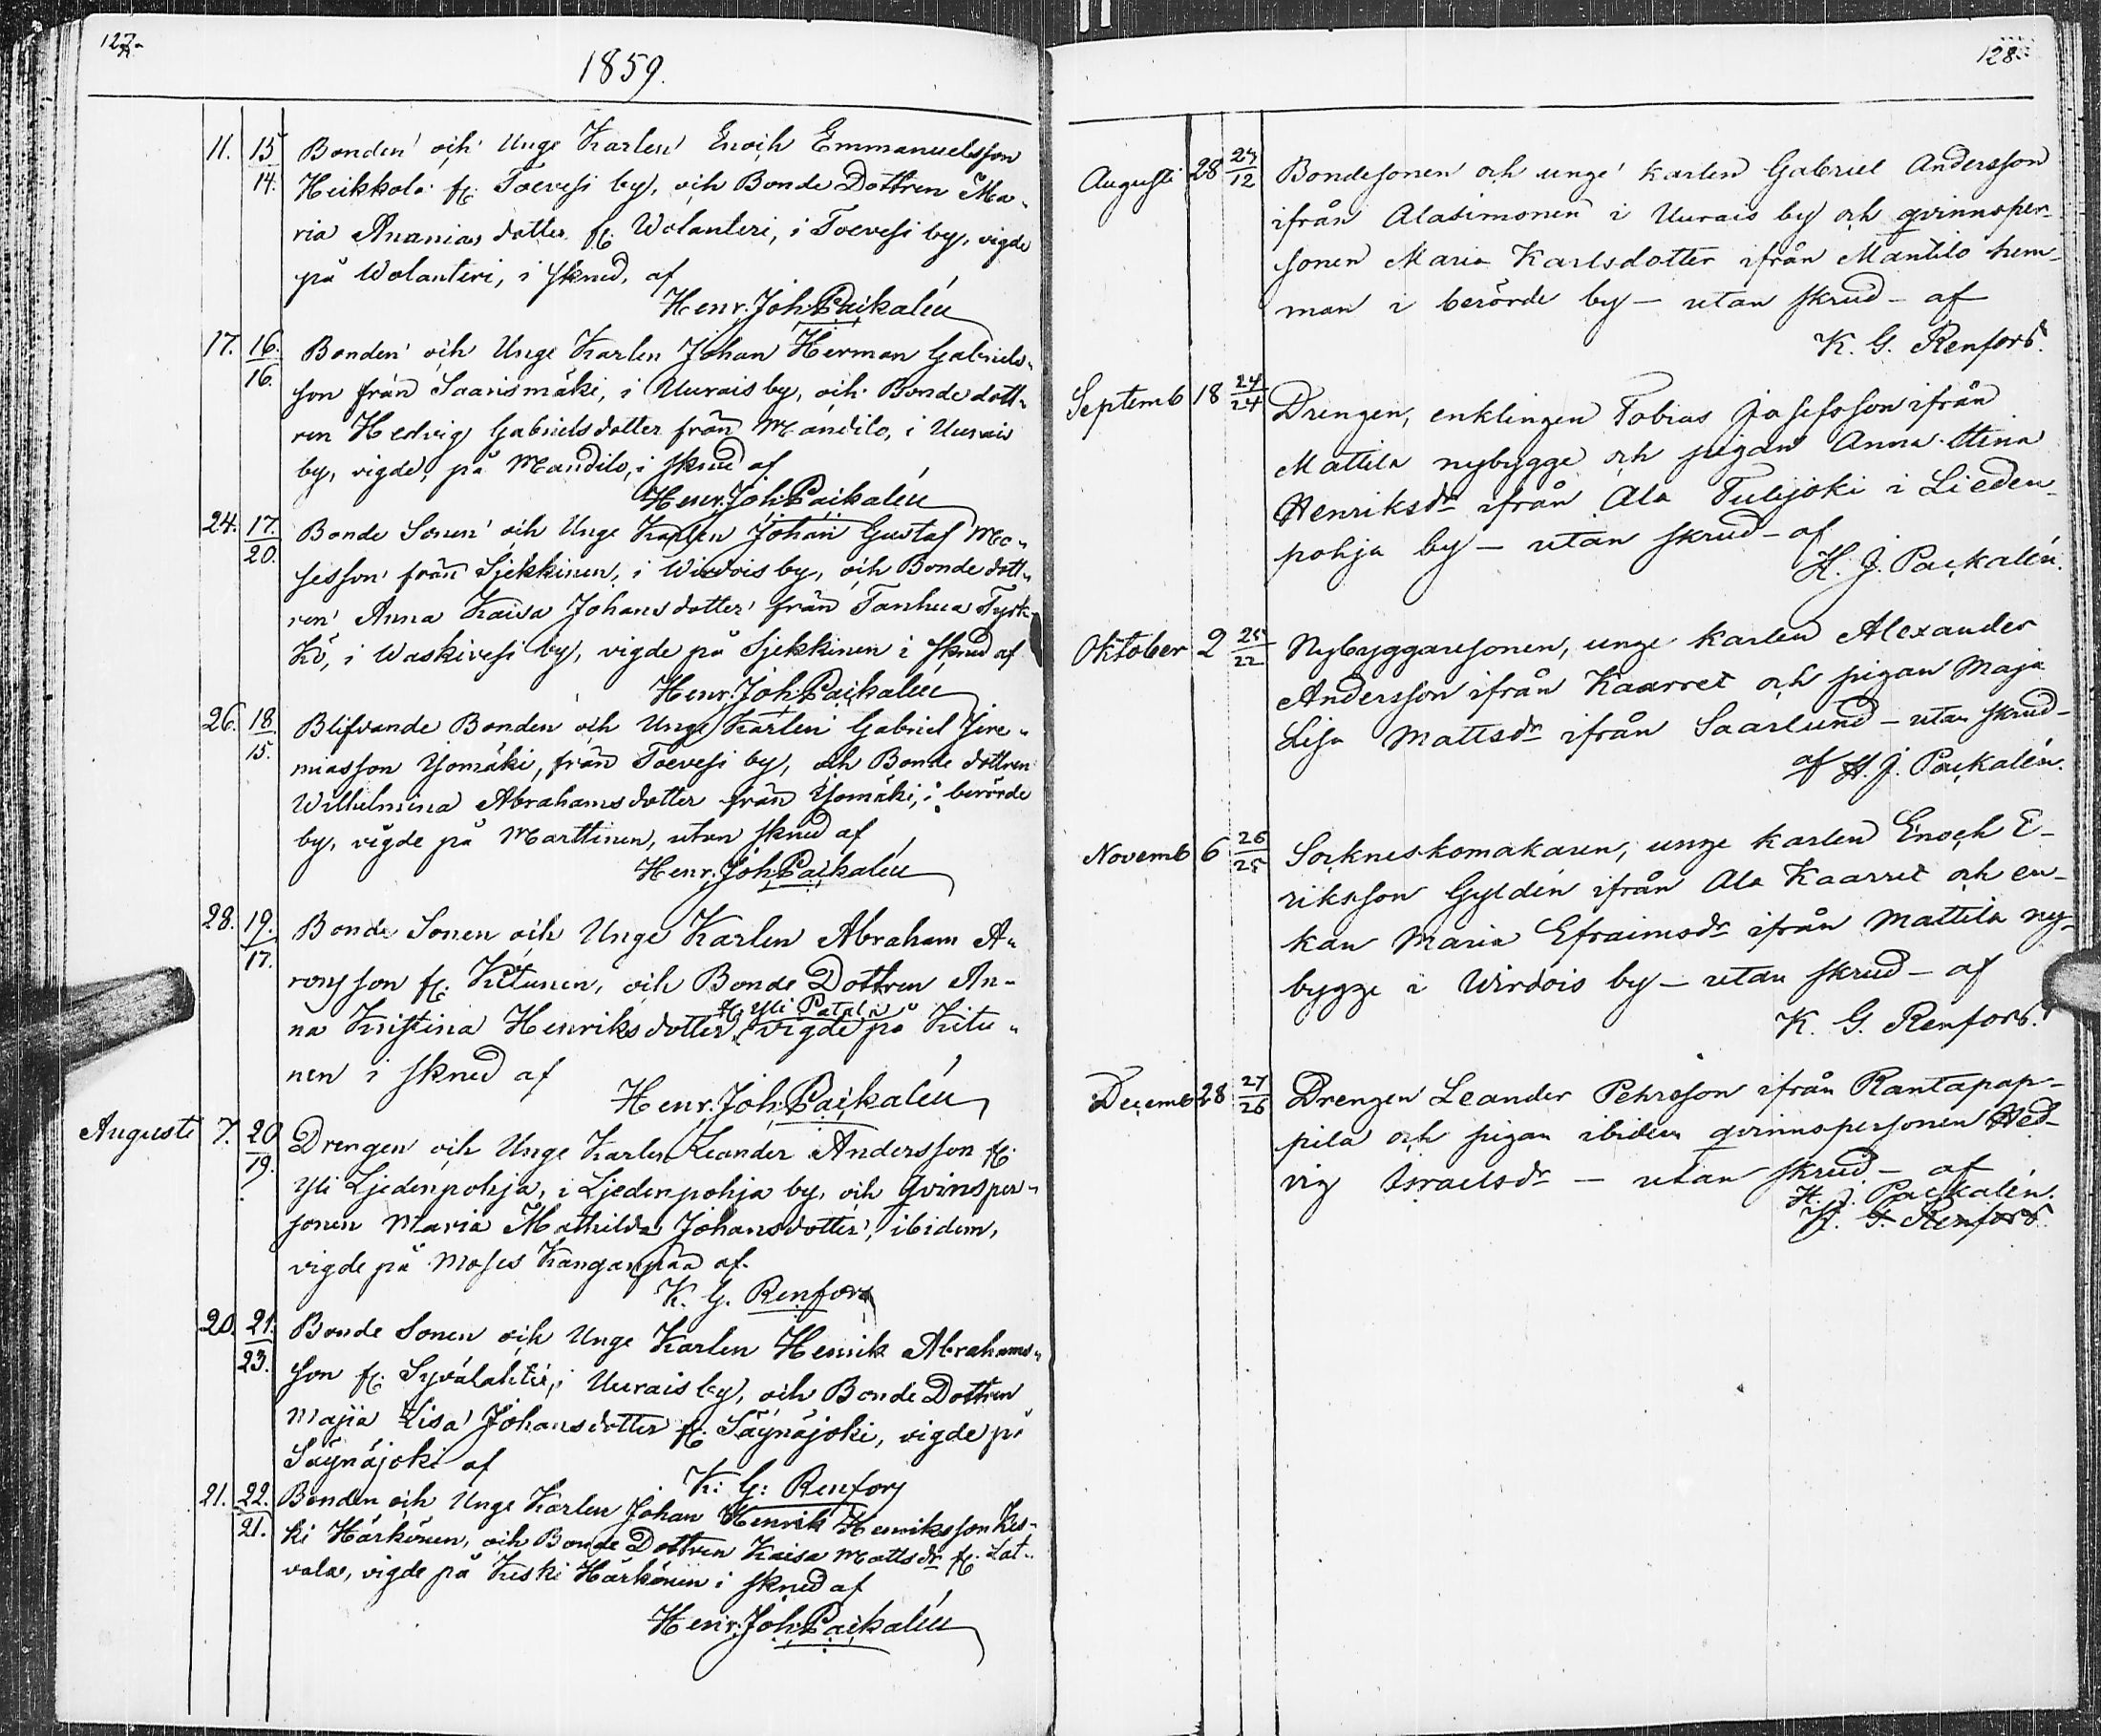 127.
1859.
11. 15/14. Bonden och Unge Karlen Enoch Emmanuelsson
Heikkola fr. Toevesi by, och Bonde Dottren Ma-
ria Ananias dotter fr. Wolanteri, i Toevesi by, vigde
på Wolanteri, i skrud, af
Henr. Joh. Packalén
17. 16./16. Bonden och Unge Karlen Johan Herman Gabriels-
son från Saarismäki, i Uurais by, och Bonde dott-
ren Hedvig Gabrielsdotter från Mandilo, i Uurais
by, vigde, på Mandilo, i skrud af
Henr. Joh. Packalén
24. 17./20. Bonde Sonen och Unge Karlen Johan Gustaf Mo-
sesson från Sjekkinen, i Wirdois by, och Bonde dott-
ren Anna Kaisa Johansdotter från Tanhua Tyrk-
kö, i Waskivesi by, vigde på Sjekkinen i skrud af
Henr. Joh. Packalén
26. 18/15. Blifvande Bonden och Unge Karlen Gabriel Jere-
miasson Yömäki, från Toevesi by, och Bonde dottren
Wilhelmina Abrahamsdotter från Yömäki, i berörde
by, vigde på Marttinen, utan skrud af
Henr. Joh. Packalén
28. 19./17. Bonde Sonen och Unge Karlen Abraham A-
ronsson fr. Kitunen, och Bonde Dottren An-
na Kristina Henriksdotter, fr. Yli Patala vigde på Kitu-
nen i skrud af
Henr. Joh. Packalén
Augusti 7. 20/19. Drengen och Unge Karlen Leander Andersson fr.
Yli Ljedenpohja, i Ljedenpohja by, och Qvinsper-
sonen Maria Mathilda Johansdotter, ibidem,
vigde på Moses Kangaspää af
K. G. Renfors
20. 21./23. Bonde Sonen och Unge Karlen Henrik Abrahams-
son fr. Syvälahti, i Uurais by, och Bonde Dottren
Majia Lisa Johansdotter fr. Säynäjoki, vigde på
Säynäjoki af
K. G. Renfors
21. 22./21. Bonden och Unge Karlen Johan Henrik Henriksson Kes-
ki Härkönen, och Bonde Dottren Kaisa Mattsdr fr. Lat-
vala, vigde på Keski Härkönen i skrud af
Henr. Joh. Packalén
128.
Augusti 28 /12 Bondesonen och unge karlen Gabriel Andersson
ifrån Alasimonen i Uurais by och qvinnsper-
sonen Maria Karlsdotter ifrån Mantilo hem-
man i berörde by - utan skrud - af
K. G. Renfors.
Septemb 18 24/24 Drengen, enklingen Tobias Josefsson ifrån
Mattila nybygge och pigan Anna Stina
Henriksdr ifrån Ala Tulijoki i Lieden-
pohja by - utan skrud - af
H. J. Packalén.
Oktober 2 25/22 Nybyggaresonen, unge karlen Alexander
Andersson ifrån Kaarret och pigan Maja
Lisa Mattsdr ifrån Saarlund - utan skrud -
af H. J. Packalén.
Novemb 6 26/25 Sockneskomakaren, unge karlen Enoch E-
riksson Gyldén ifrån Ala Kaarret och en-
kan Maria Efraimsdr ifrån Mattila ny-
bygge i Wirdois by - utan skrud - af
K. G. Renfors.
Decemb 28 27/26 Drengen Leander Pehrsson ifrån Rantapap-
pila och pigan ibidem qvinnspersonen Hed-
vig Israelsdr - utan skrud - af
H. J. Packalén.
K. G. Renfors.